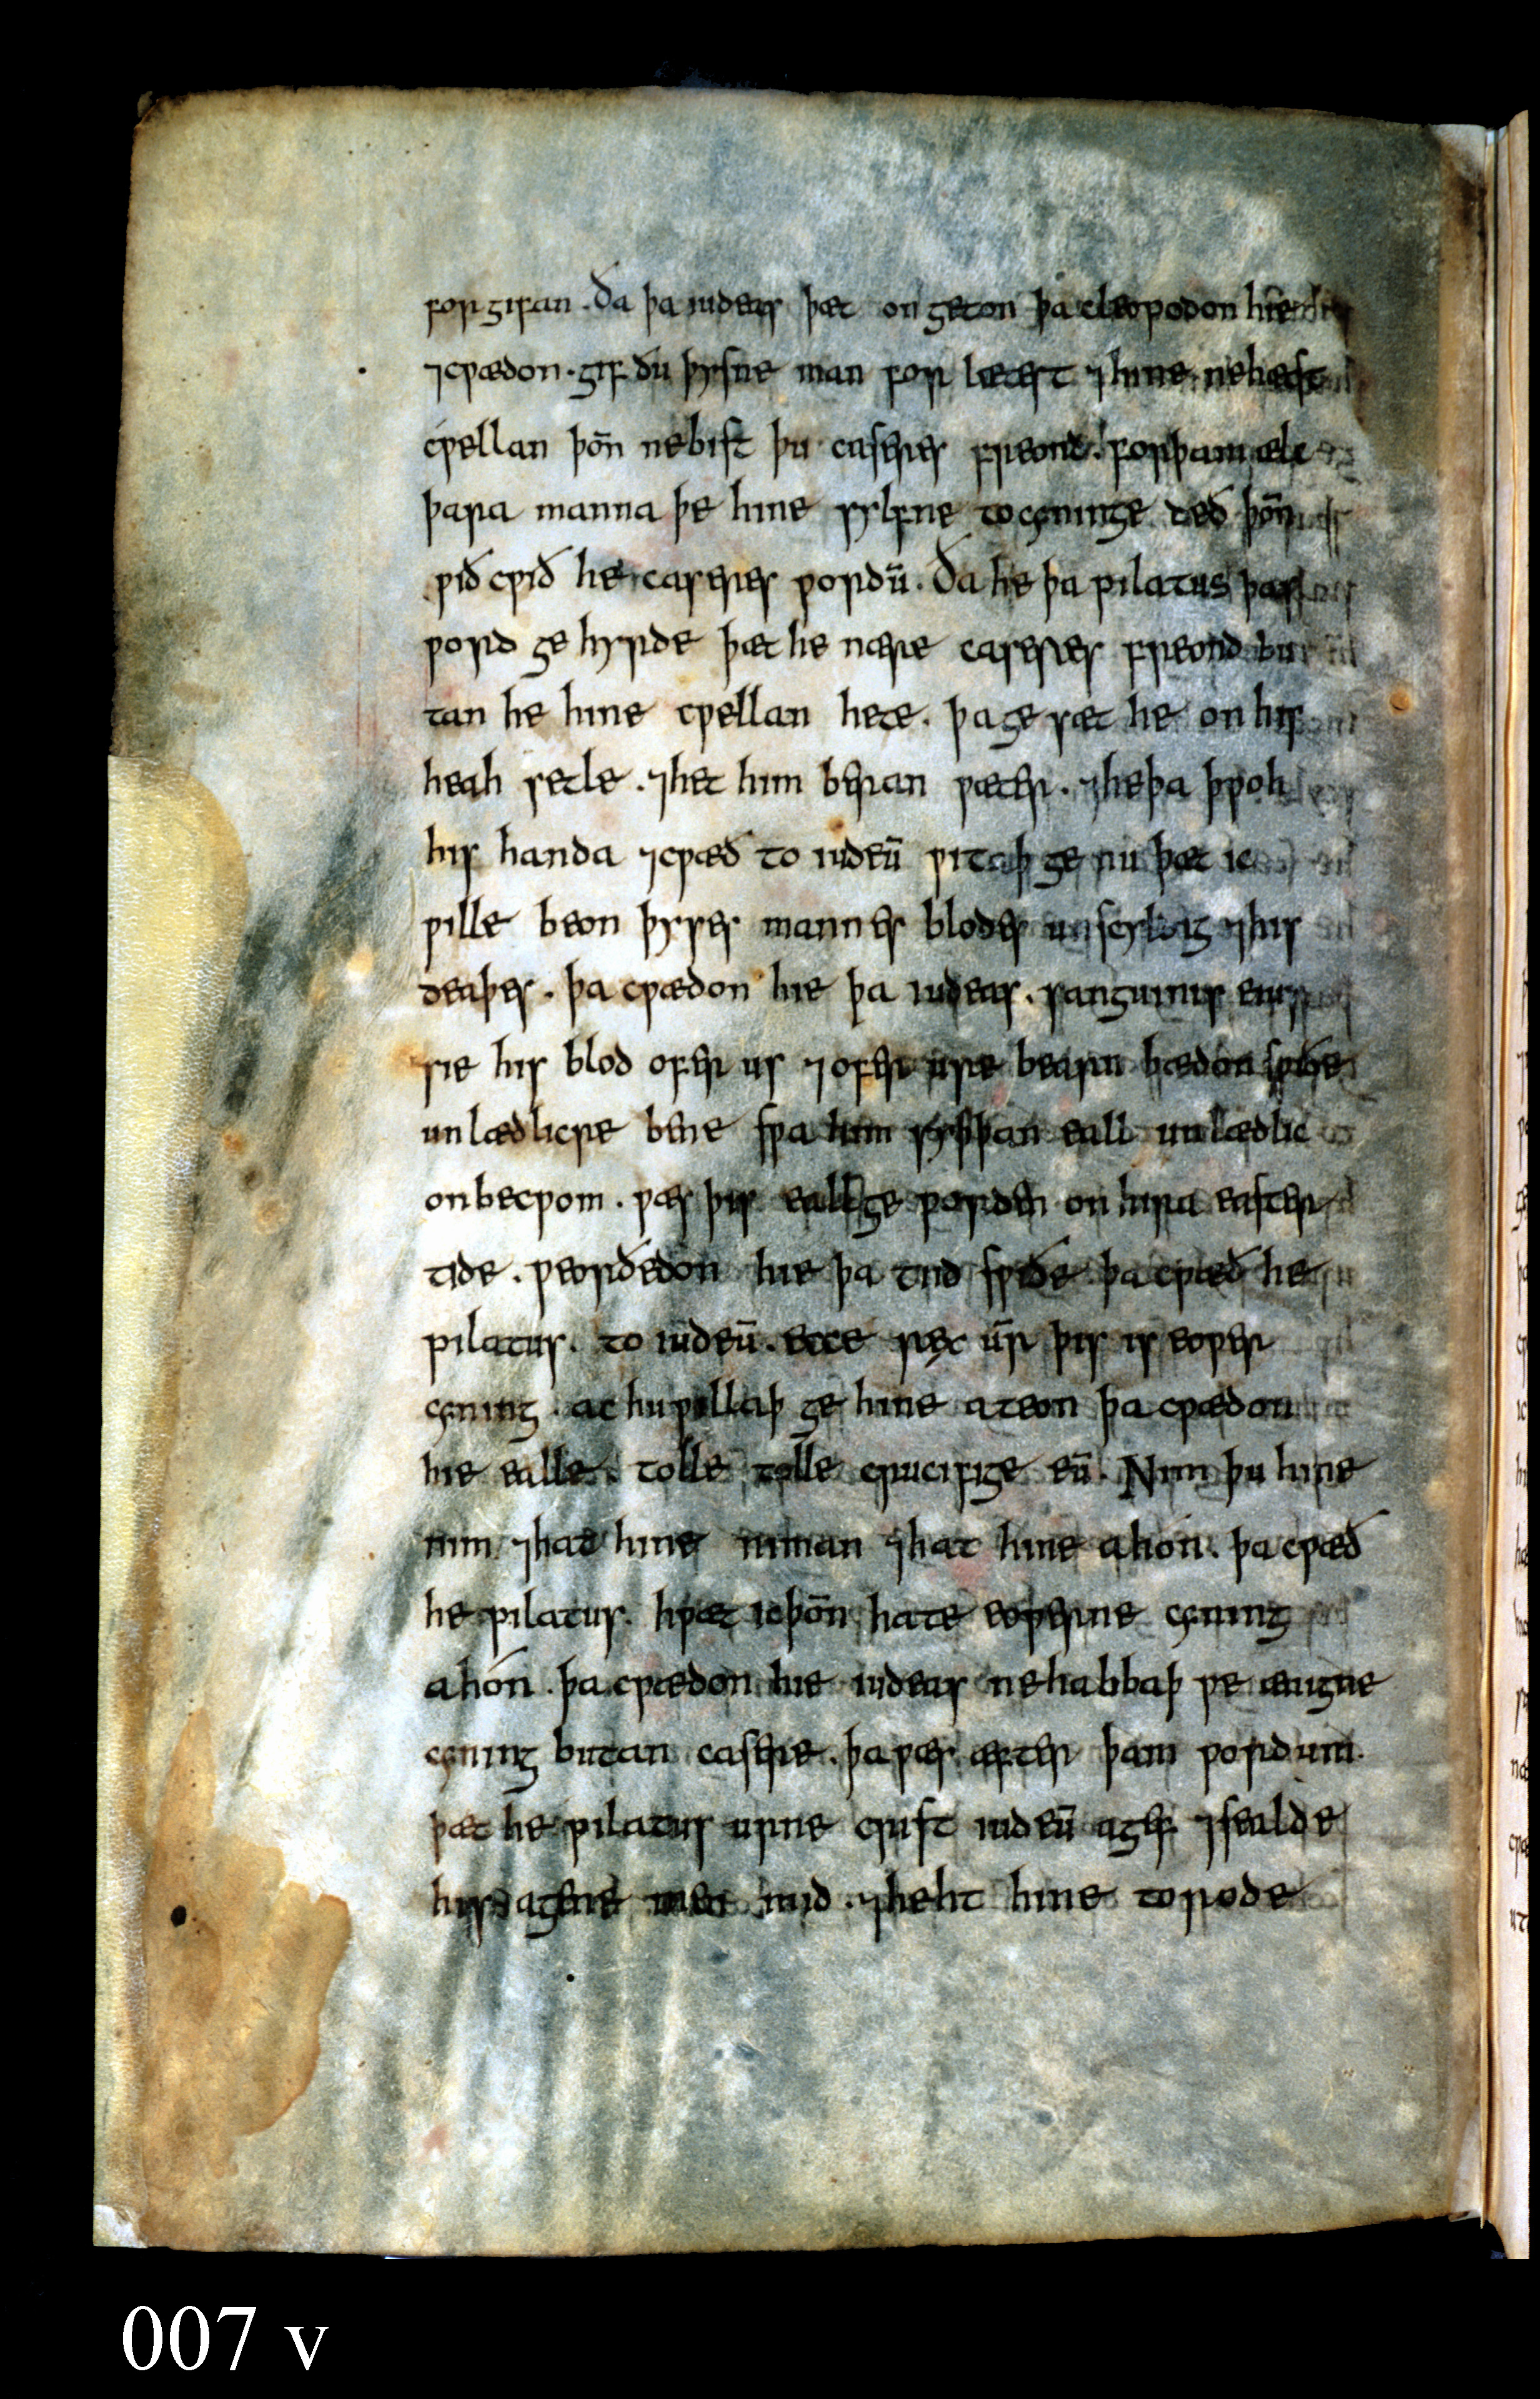 forgifan. Ða þa iudeas þæt ongeton þa cleopodon hie
⁊ cƿædon. gif ðu þysne man forlætest ⁊ hine ne hætst
cƿellan þoñ ne bist þu caseres freond. forþam ælc
þara manna þe hine sylfne to cyninge deð þoñ
ƿið cƿið he caseres ƿordū. Ða he þa pilatus þæs
ƿord gehyrde þæt he nære caseres freond bu
tan he hine cƿellan hete. þa gesæt he on his
heah setle. ⁊ het him beran ƿæter. ⁊ he þa þƿoh
his handa ⁊ cƿæð to iudeū ƿitaþ ge nu þæt ic
ƿille beon þyses mannes blodes unscyldig ⁊ his
deaþes. þa cƿædon hie þa iudeas. sanguinis eius
sie his blod ofer us ⁊ ofer ure bearn bædon sƿiðe
unlædlicre bene sƿa him syþþan eall unlædlic
on becƿom. ƿæs þis eall geƿorden on hira easter
tide. ƿeorðedon hie þa tiid sƿiðe. þa cƿæð he
pilatus. to iudeū. ecce rex ūr þis is eoƿer
cyning. ac hu ƿillaþ ge hine ateon þa cƿædon
hie ealle. tolle tolle crucifige eū. Nim þu hine
nim ⁊ hat hine niman ⁊ hat hine ahón. þa cƿæð
he pilatus. hƿæt ic þoñ hate eoƿerne cyning
ahón. þa cƿædon hie iudeas ne habbaþ ƿe ænigne
cyning butan casere. þa ƿæs æfter þam ƿordum.
þæt he pilatus urne crist iudeū agef ⁊ sealde
his agene men mid. ⁊ heht hine to rode
007 v